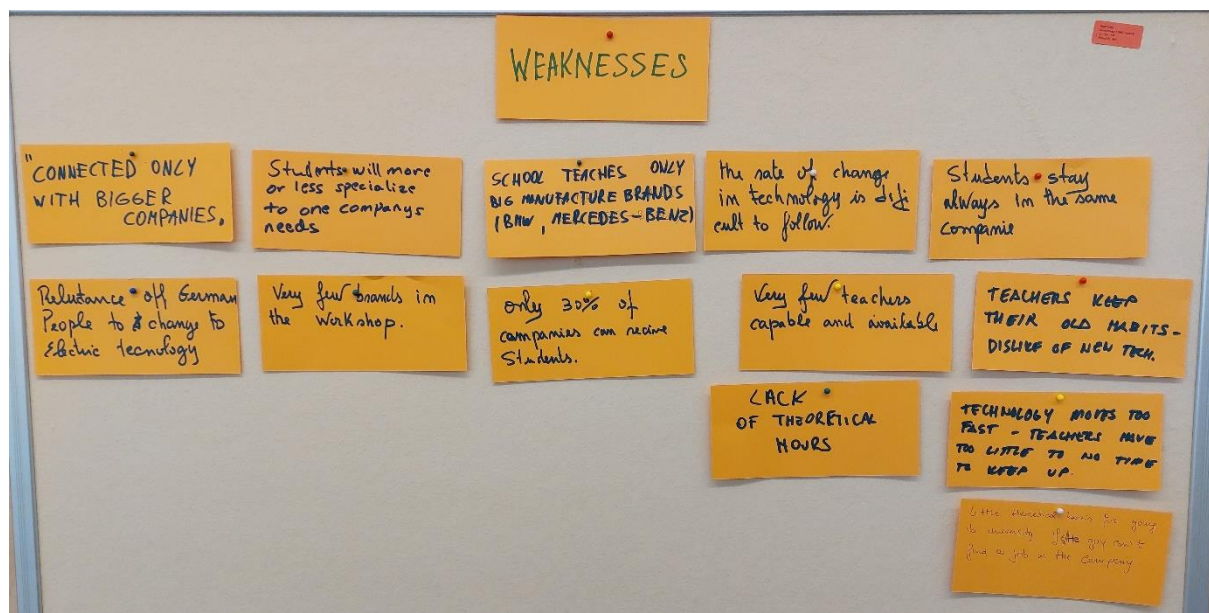 WEAKNESSES
"CONNECTED ONLY
WITH BIGGER
COMPANIES,
Students will more
or less specialize
to one companys
needs
SCHOOL TEACHES ONLY
BIG MANUFACTURE BRANDS
(BMW, MERCEDES-BENZ)
the rate of change
in technology is difi
cult to follow.
Students stay
always in the same
companie
Relutance off German
People to change to
Electric tecnology
Very few brands in
the Workshop.
only 30% of
companies can recive
Students.
Very few teachers
capable and available
TEACHERS KEEP
THEIR OLD HABITS-
DISLIKE OF NEW TECH.
LACK
OF THEORETICAL
HOURS
TECHNOLOGY MOVES TOO
FAST - TEACHERS HAVE
TOO LITTLE TO NO TIME
TO KEEP UP.
Little theoretical for going
to university if the guy can't
find a job in the company